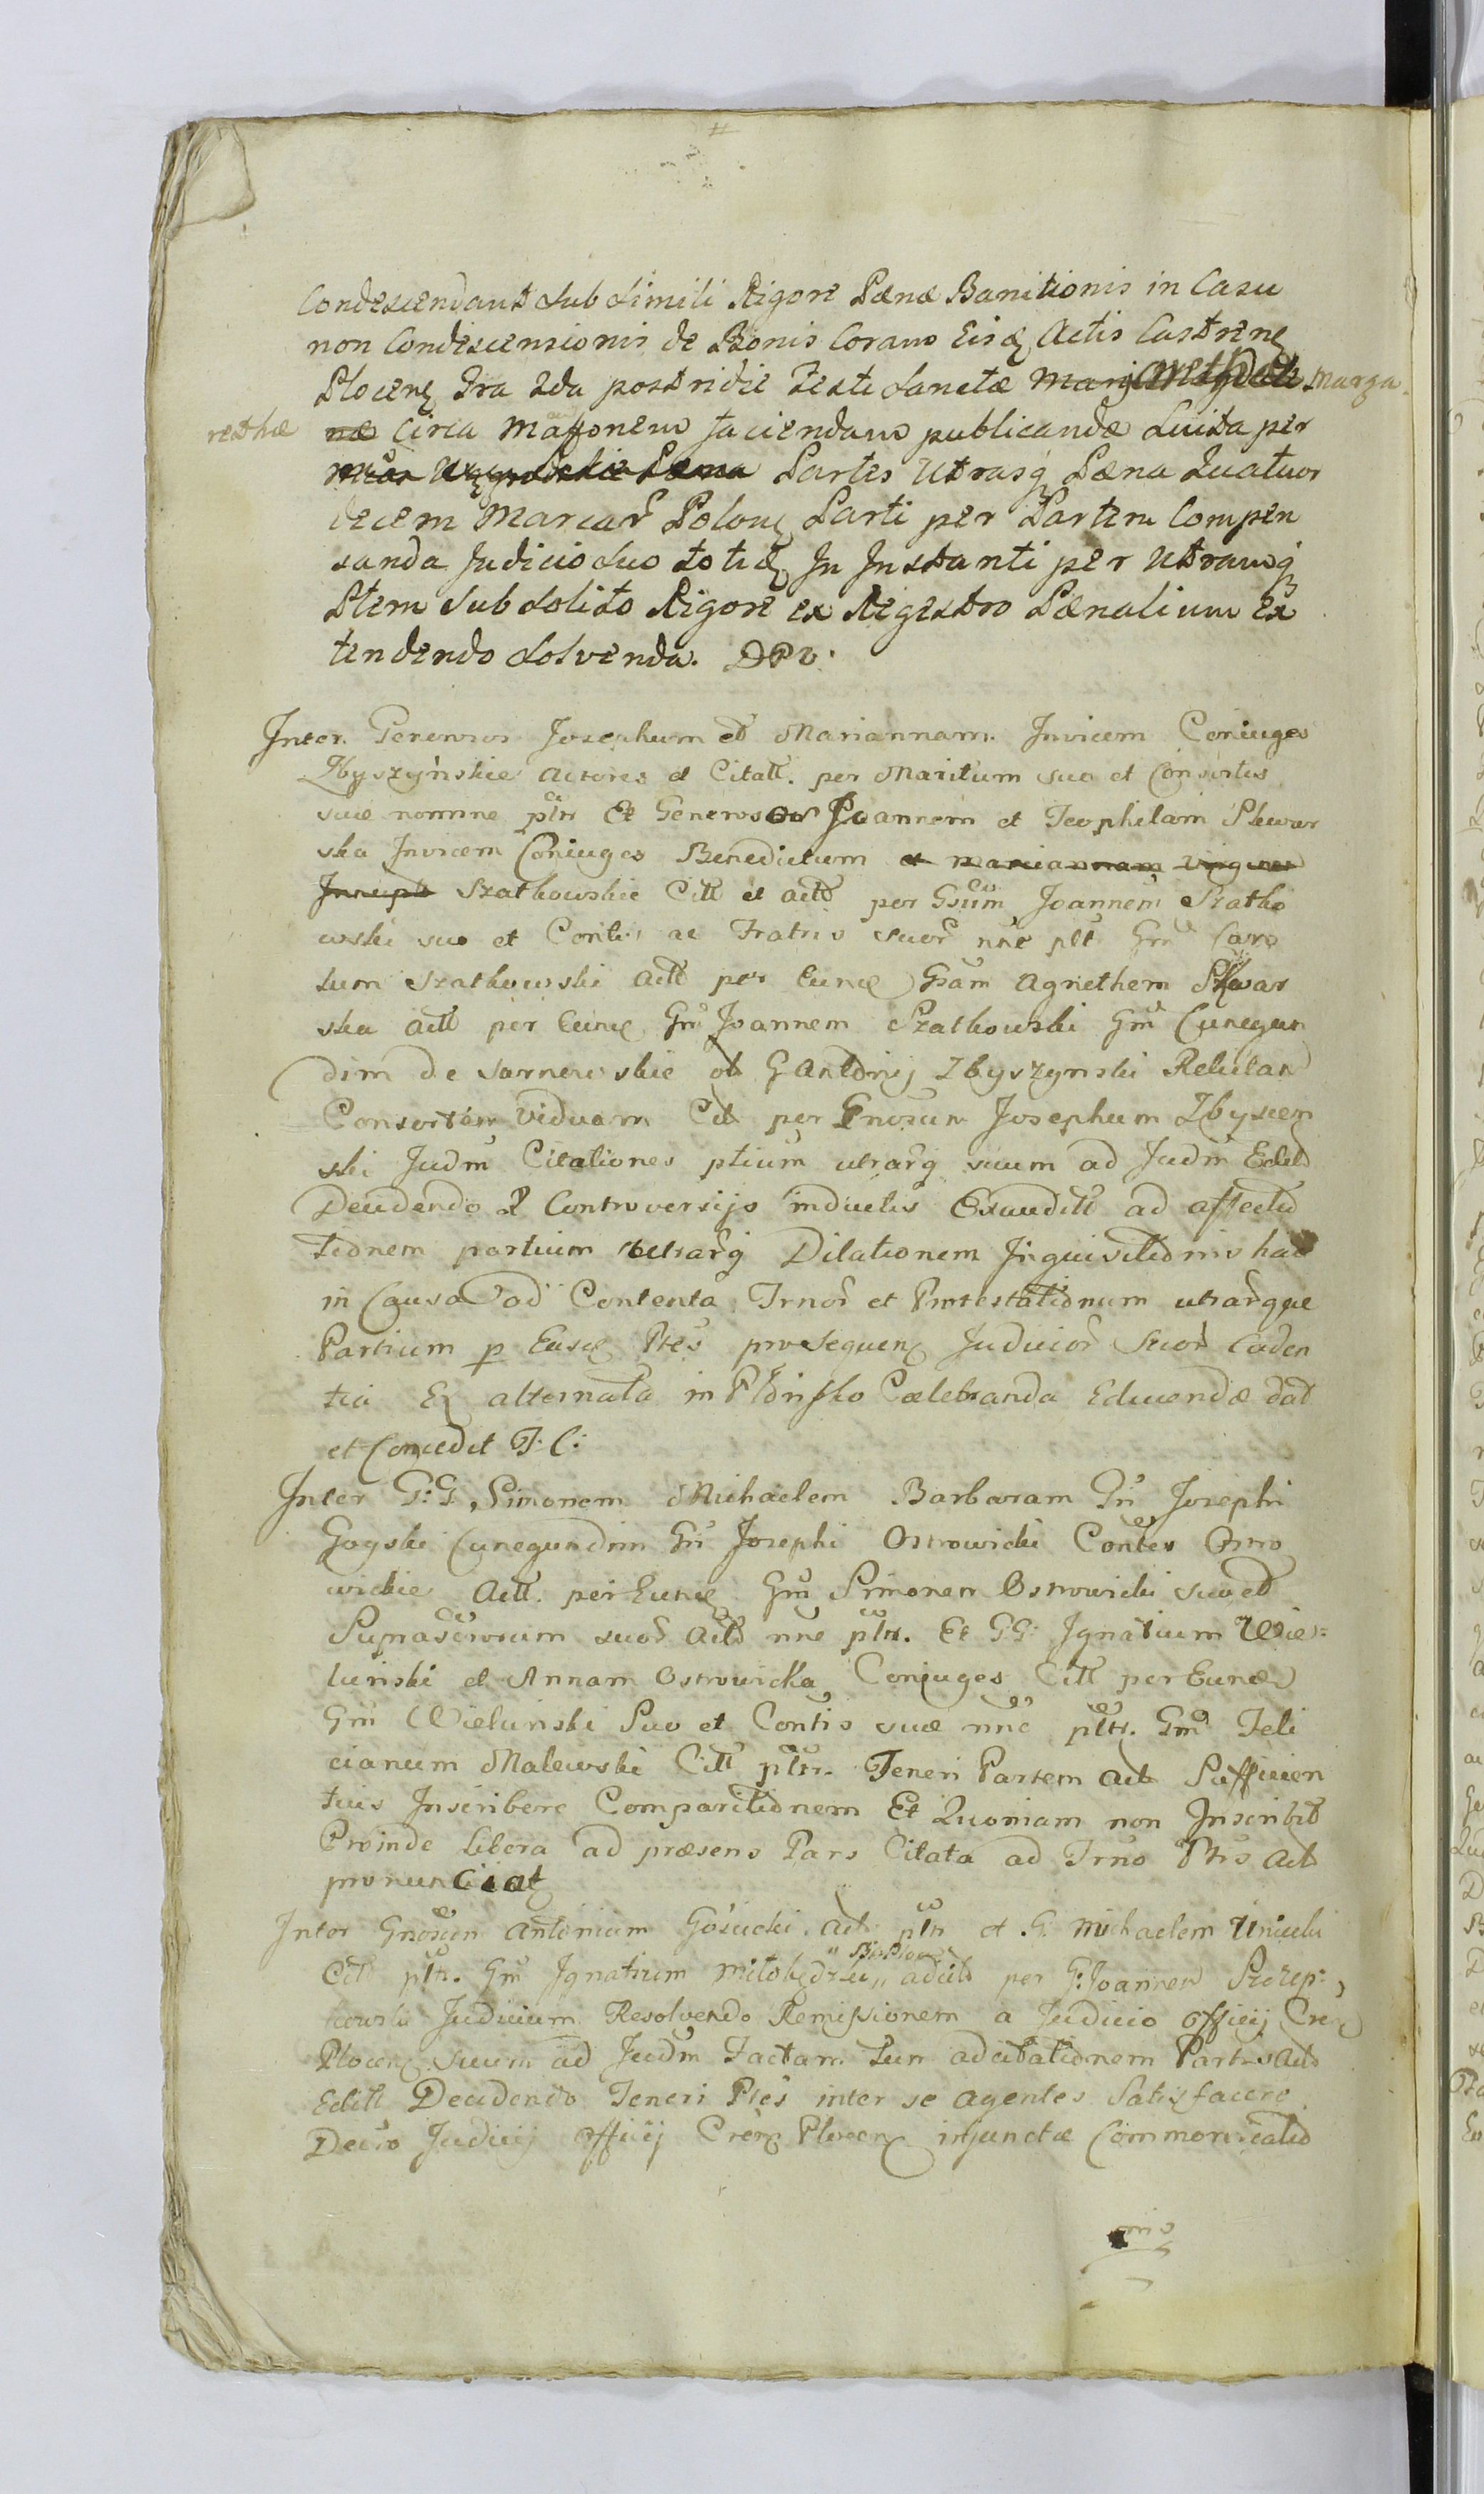 Condescendant sub simili Rigore Pænæ Banitionis in Casu
non Condescensionis de Bonis Coram Eisq Actis Castrenq
Plocenq Fra 2da postridie Festi Sanctæ Marga
rethæ circa Maōnem faciendam publicandæ Luita per
Partes Utrasq Pæna Quatuor
decem Marcar Polonq Parti per Partem Compen
sanda Judicio suo totiq In Instanti per Utramq
Ptem sub Solito Rigore ex Regestro Pænalium Ex
tendendo solvenda. DPV.
Inter Generosos Josephum et Mariannam Invicem Coniuges
Zbyszyńskie Actores et Citatt. per Maritum suo et Consortis
suæ nomine pltr Et Generosos Joannem et Teophilam Skwar
ska Invicem Coniuges Benedictum et Mariannam Virgines
Szatkowskie Citt et actt per Gsum Joannem Szatko
wski suo et Contis ac Fratris suor nne plt Gm Caro
lum Szatkowski Actt per Eunq Gsam Agnethem Skwar
ska actt per Eunq Gm Joannem Szatkowski Gm Cunegun
dim de Sarnewskie ol G Antonij Zbyszynski Relictam
Consortem Viduam Cit per Gnosum Josephum Zbyszen
ski Judm Citationes ptium utrarq suum ad Judm Edit
Decidendo Controversijs inductis Exaudit ad affecta
tionem partium utrarq Dilationem Inquisitionis hac
in Causa ad Contenta Trnor et Protestationum utrarque
Partium p Eusq Ptes prosequenq Judicior suor Caden
tia Ex alternata in Płońsko Cælebranda Educendæ dat
et Concedit T. C.
Inter G: G, Simonem Michaelem Barbaram Gn Josephi
Goyski Cunegundim Gn Josephi Ostrowicki Contes Ostro
wickie Actt. per Eunq Gm Simonem Ostrowicki suo et
Suprascrorum suor Actt nne pltr. Et GG: Ignatium Wie=
lunski et Annam Ostrowicka Coniuges Citt per Eunq
Gm Wielunski Suo et Contis suæ nne pltr. Gm Feli
cianum Malewski Citt pltr. Teneri Partem Act Sufficien
tius Inscribere Comparitionem Et Quoniam non Inscribit
Proinde libera ad præsens Pars Citata ad Trno Ptis Act
pronunciatq
Inter Gnosum Antonium Gosucki Act pltr et G. Michaelem
Citt pltr. Gm Ignatium adcitt per G: Joannem
Judicium Resolvendo Remissionem a Judicio Officij Cren
Plocenq suum ad Judm Factam Tum adcitationem Partis Act
Editt Decidendo Teneri Ptes inter se agentes Satisfacere
Decro Judicij Officij Crenq Plocenq injunctæ Communicatio
onis